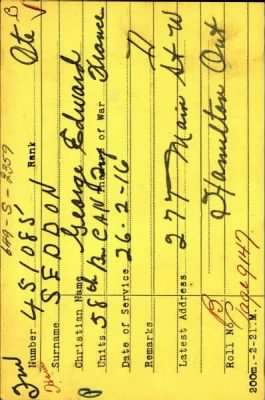 649-S-2359 B
Number 451085 Rank Pte
Surname SEDDON
Christian Name George Edward
Units 58th Bn CAN Inf Theatre of War France
Date of Service 26-2-16
Remarks
Latest Address 277 Main St W
Hamilton Ont
Roll No. B Page 9147
200m.-2-21.M.